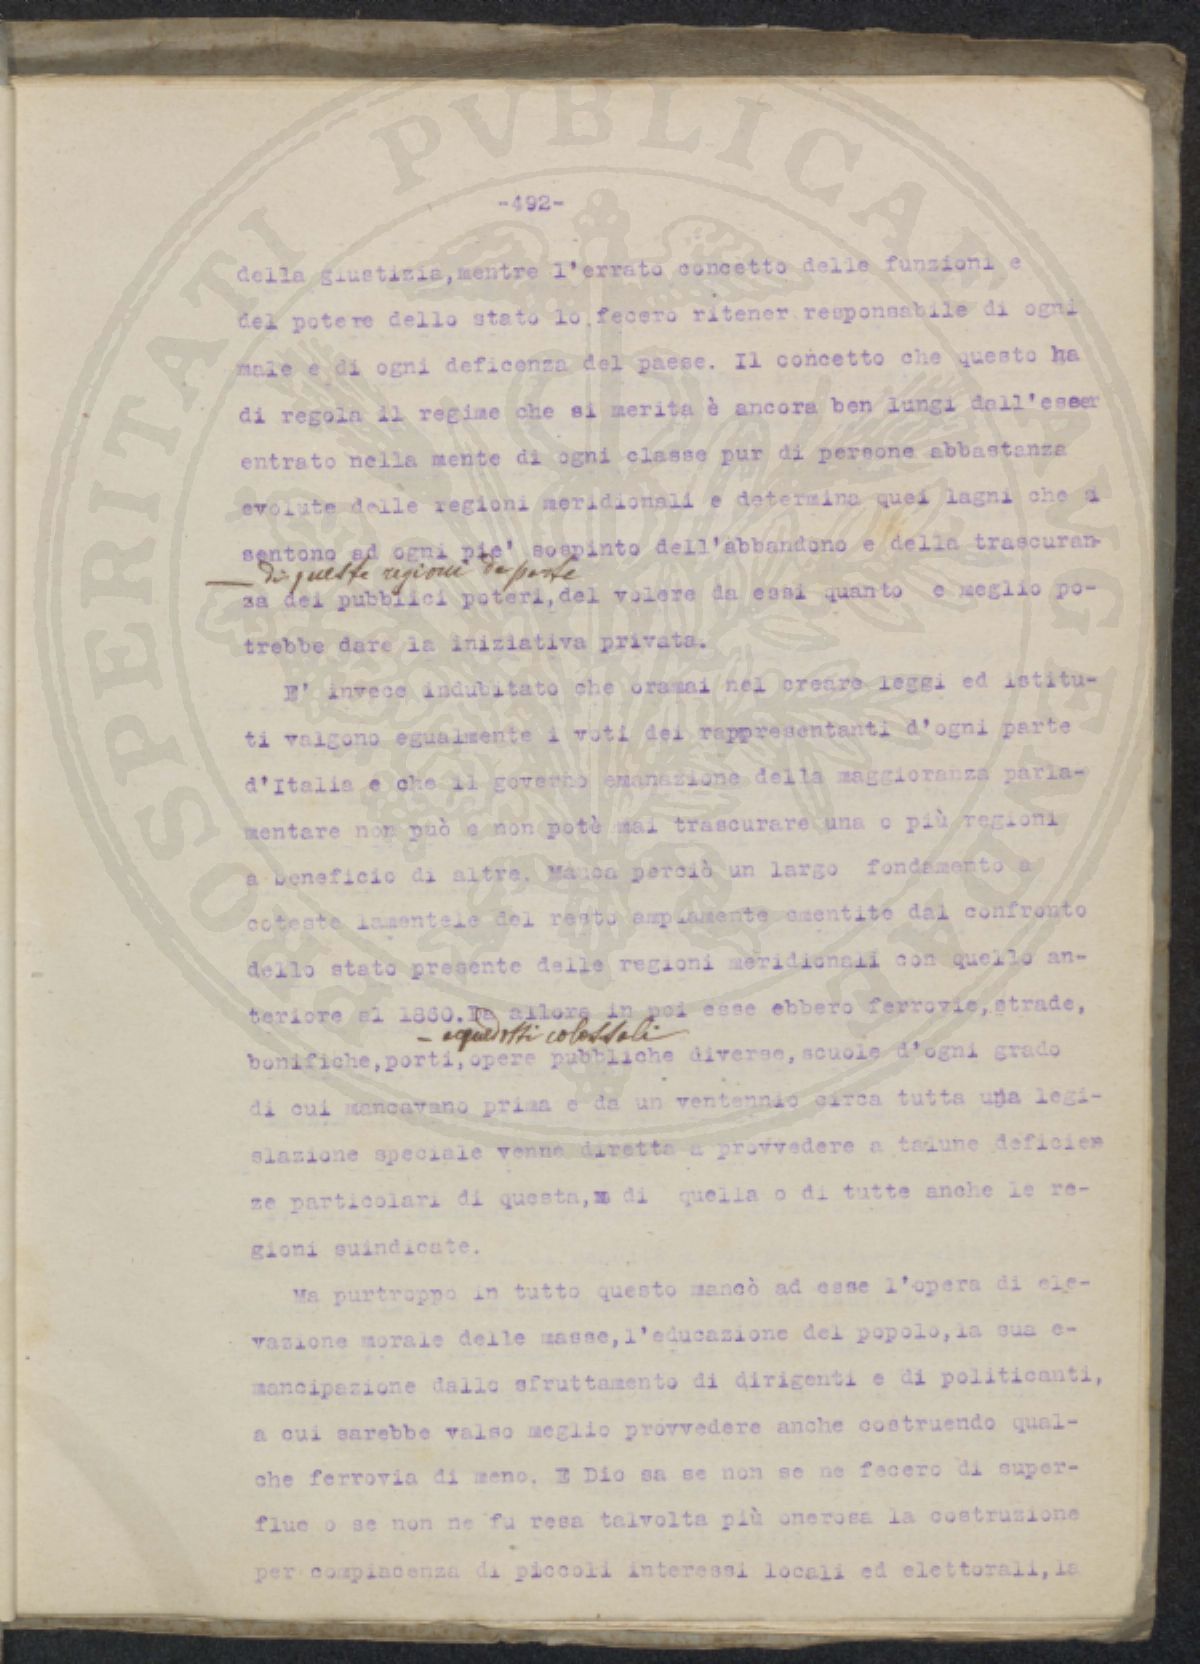 -492-
della giustizia,mentre l'errato concetto delle funzioni e
del potere dello stato lo fecero ritener responsabile di ogni
male e di ogni deficenza del paese. Il concetto che questo ha
di regola il regime che si merita è ancora ben lungi dall'esser
entrato nella mente di ogni classe pur di persone abbastanza
evolute delle regioni meridionali e determina quei lagni che si
sentono ad ogni pie' sospinto dell'abbandono e della trascuran-
di queste regioni da parte
za dei pubblici poteri,del volere da essi quanto e meglio po-
trebbe dare la iniziativa privata.
E' invece indubitato che oramai nel creare leggi ed istitu-
ti valgono egualmente i voti dei rappresentanti d'ogni parte
d'Italia e che il governo emanazione della maggioranza parla-
mentare non può e non potè mai trascurare una o più regioni
a beneficio di altre. Manca perciò un largo fondamento a
coteste lamentele del resto ampiamente smentite dal confronto
dello stato presente delle regioni meridionali con quello an-
teriore al 1860.Da allora in poi esse ebbero ferrovie,strade,
- aquedotti colossali
bonifiche,porti,opere pubbliche diverse,scuole d'ogni grado
di cui mancavano prima e da un ventennio circa tutta una legi-
slazione speciale venne diretta a provvedere a talune deficien
ze particolari di questa, di quella o di tutte anche le re-
gioni suindicate.
Ma purtroppo in tutto questo mancò ad esse l'opera di ele-
vazione morale delle masse,l'educazione del popolo,la sua e-
mancipazione dallo sfruttamento di dirigenti e di politicanti,
a cui sarebbe valso meglio provvedere anche costruendo qual-
che ferrovia di meno. E Dio sa se non se ne fecero di super-
flue o se non ne fu resa talvolta più onerosa la costruzione
per compiacenza di piccoli interessi locali ed elettorali,la
PROSPERITATI PVBLICAE AVGENDAE